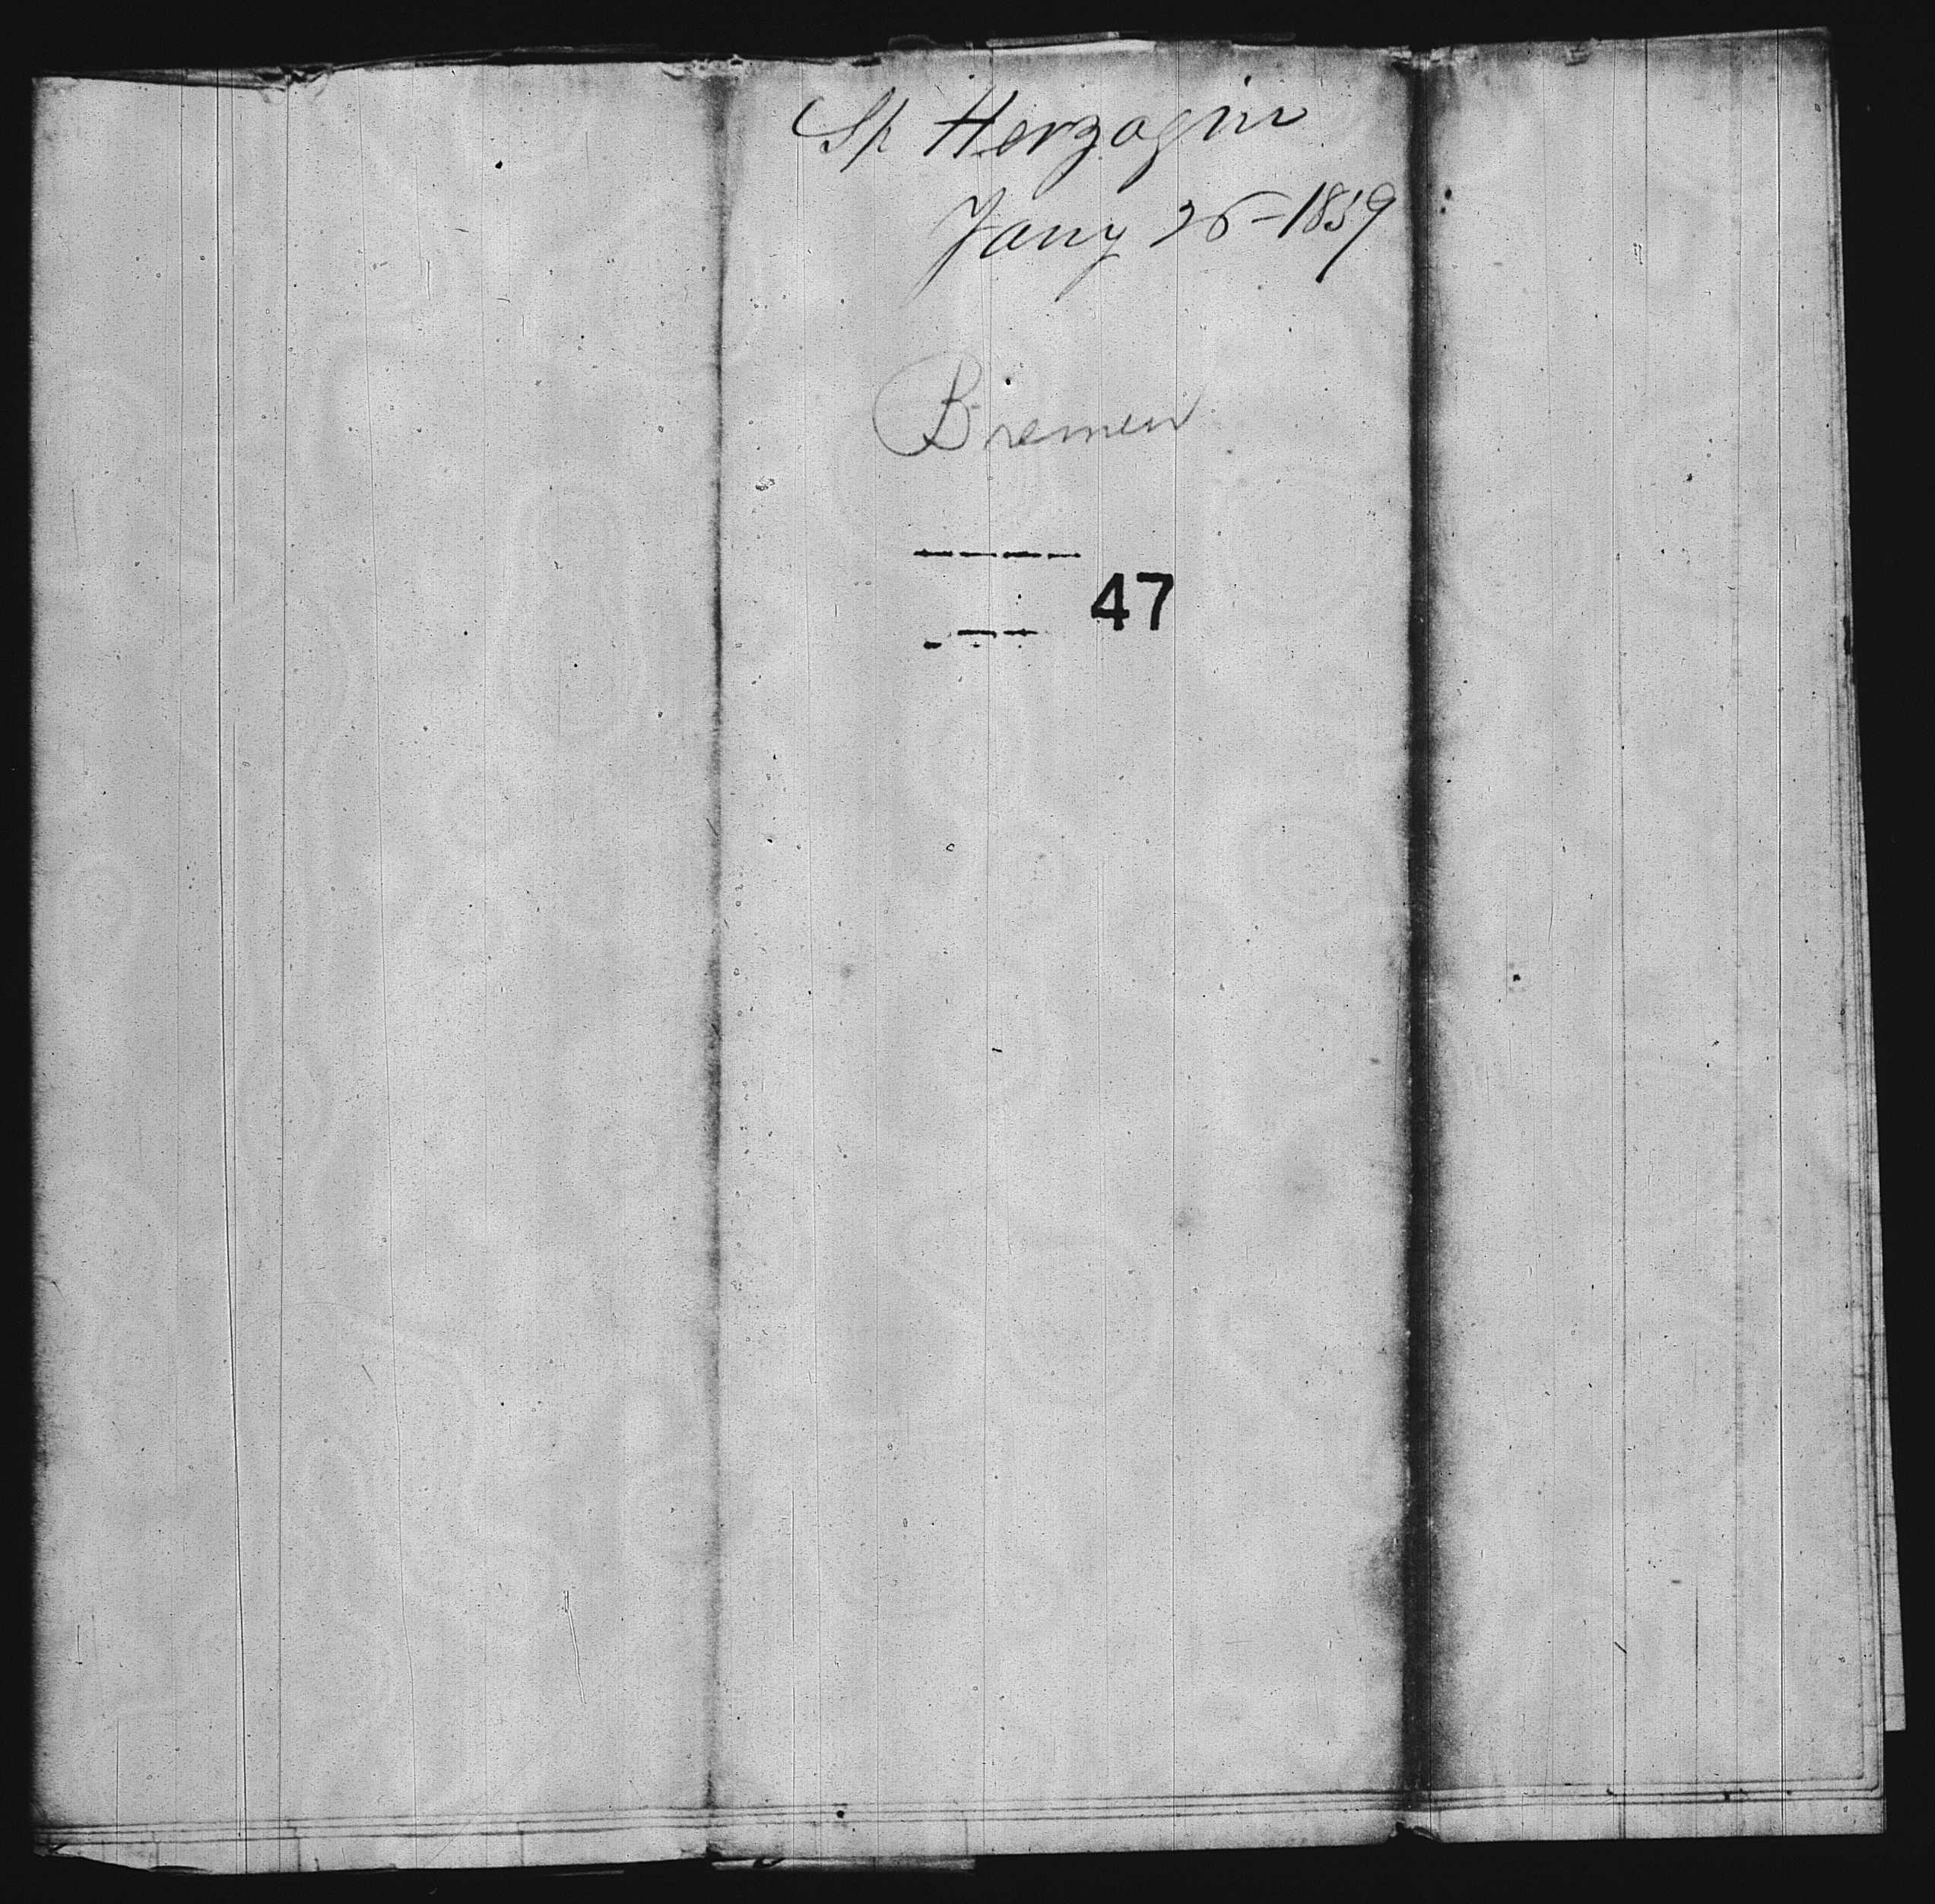 Sh Herzogin
Jany 26-1859
Bremen
47